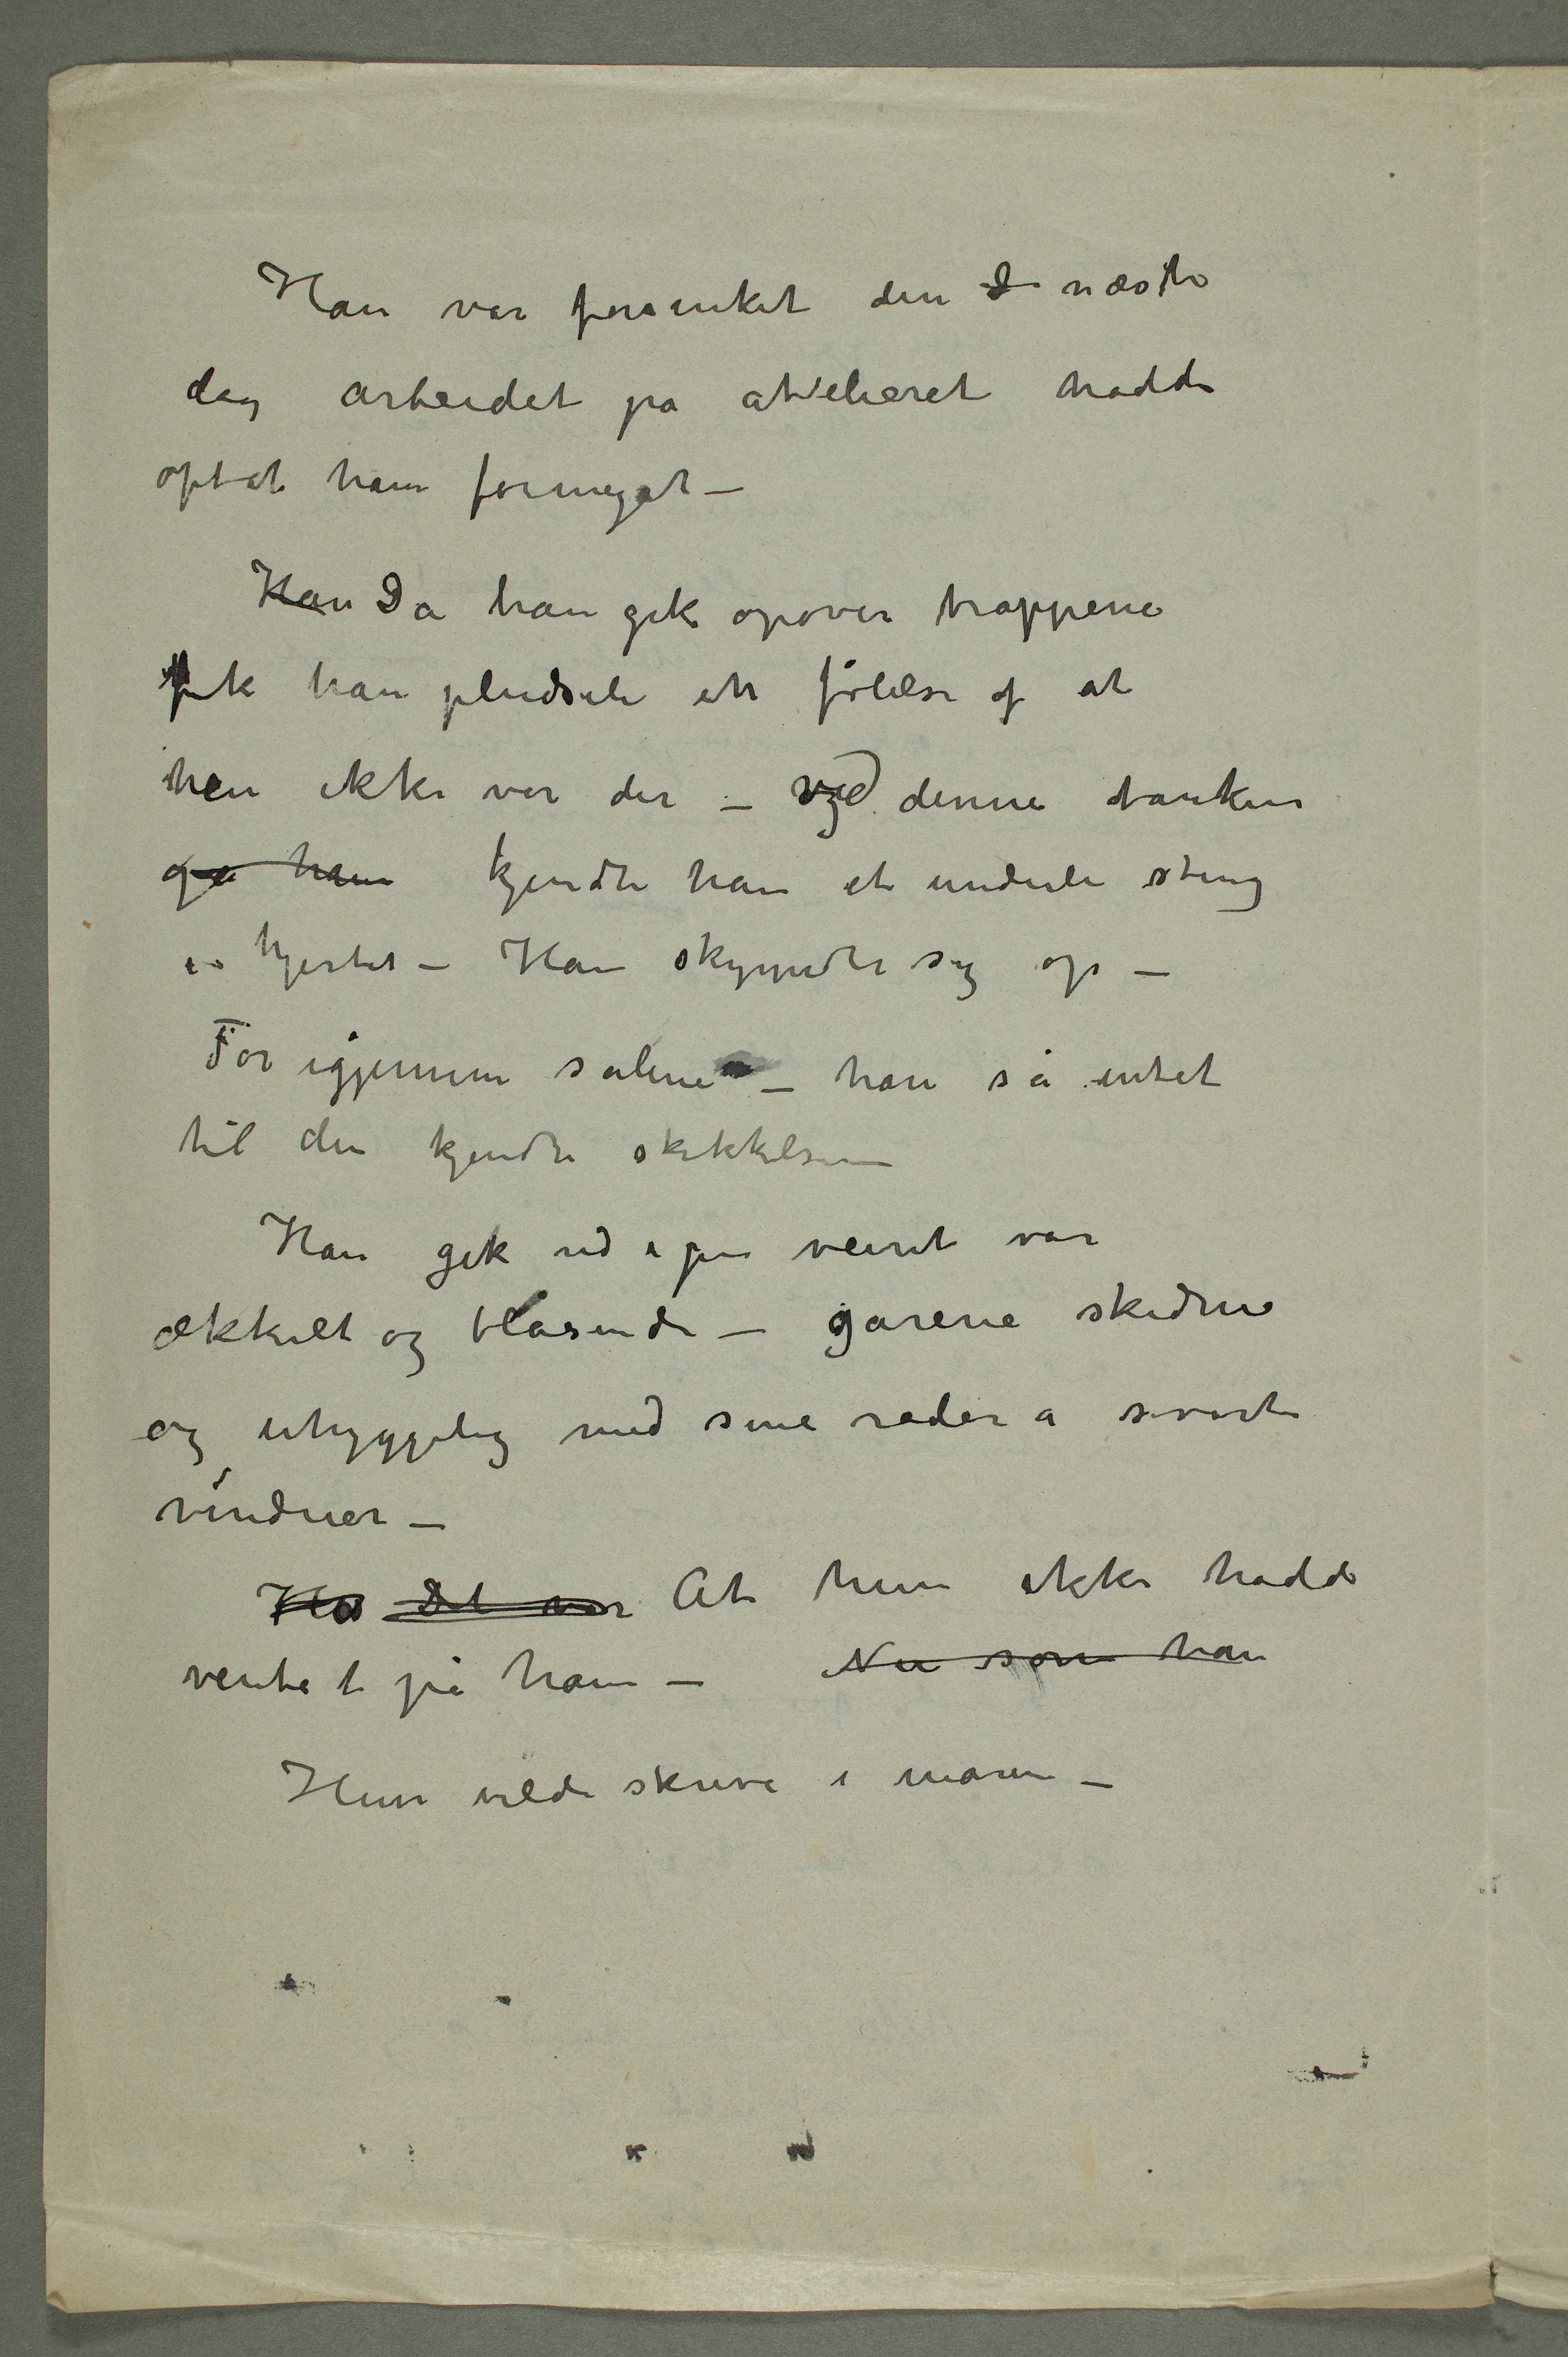 Han var forsinket den næste
dag arbeidet på attelieret hadde
optat ham formeget –
Han Da han gik opover trappene
fik han pludseli en følelse af at
hun ikke var der – ved denne tanken
ga ham kjendte han et underli sting
i hjertet – Han skyndte sig op –
For igjennem salene – han så intet
til den kjendte skikkelsen
Han gik ud igjen veiret var
ækkelt og blåsende – gårene skidne
og uhyggelig med sine rader a svarte
vinduer –
Ha Det var At hun ikke hadde
ventet på ham – Nu som han
Hun vilde skrive i maren –